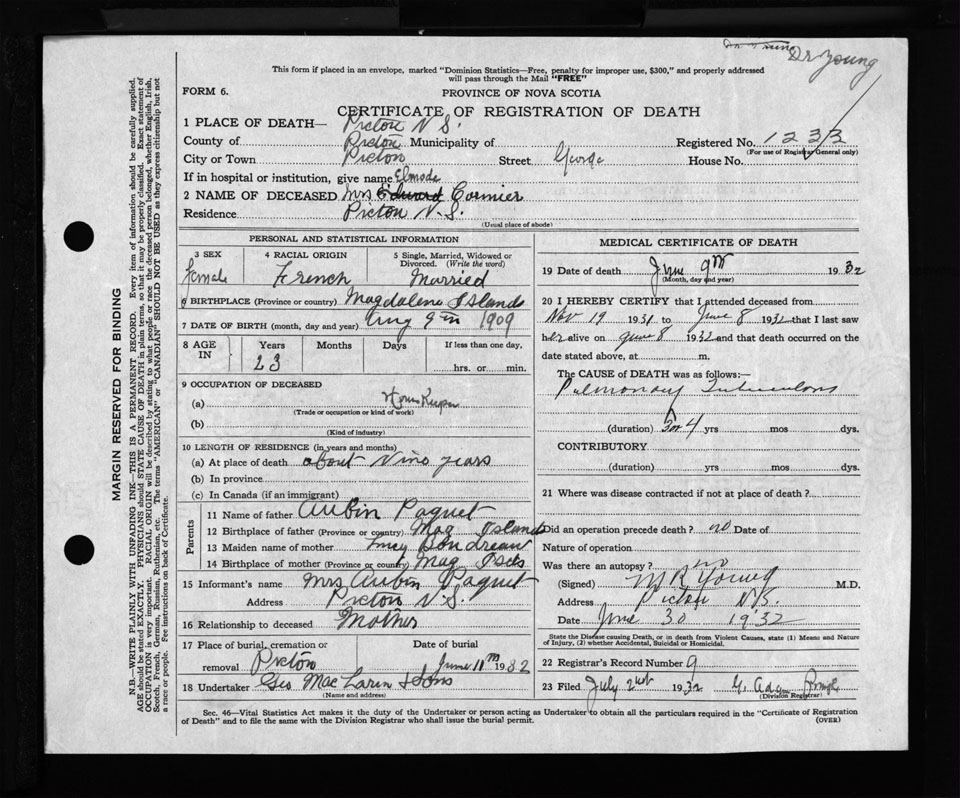 Dr Young
Dr Young
This form if placed in an envelope, marked "Dominion Statistics—Free, penalty for improper use, $300," and properly addressed
will pass through the Mail "FREE"
FORM 6.
PROVINCE OF NOVA SCOTIA
CERTIFICATE OF REGISTRATION OF DEATH
1 PLACE OF DEATH— Picton N S.
County of Picton Municipality of Registered No. 1233
(For use of Registrar General only)
City or Town Picton Street George House No.
If in hospital or institution, give name Elmoda
2 NAME OF DECEASED Mrs Edward Cormier
Residence Picton N.S.
(Usual place of abode)
PERSONAL AND STATISTICAL INFORMATION
3 SEX 4 RACIAL ORIGIN 5 Single, Married, Widowed or
Divorced. (Write the word)
Female French Married
6 BIRTHPLACE (Province or country) Magdalene Islands
7 DATE OF BIRTH (month, day and year) Aug 9th 1909
8 AGE IN Years Months Days If less than one day.
23 hrs. or min.
9 OCCUPATION OF DECEASED
(a) House Keeper
(Trade or occupation or kind of work)
(b)
(Kind of industry)
10 LENGTH OF RESIDENCE (in years and months)
(a) At place of death about Nine years
(b) In province
(c) In Canada (if an immigrant)
Parents
11 Name of father Aubin Paquet
12 Birthplace of father (Province or country) Mag Islands
13 Maiden name of mother Boudreau
14 Birthplace of mother (Province or country) Mag Isds
15 Informant's name Mrs Aubin Paquet
Address Picton N.S.
16 Relationship to deceased Mother
17 Place of burial, cremation or Date of burial
removal Picton June 11th 1932
18 Undertaker Geo MacLaren & Sons
(Name and address)
MEDICAL CERTIFICATE OF DEATH
19 Date of death June 9th 1932
(Month, day and year)
20 I HEREBY CERTIFY that I attended deceased from
Nov 19 1931 to June 8 1932 that I last saw
her alive on June 8 1932 and that death occurred on the
date stated above, at m.
The CAUSE of DEATH was as follows:—
Pulmonary Tuberculosis
(duration) 3 or 4 yrs mos dys.
CONTRIBUTORY
(duration) yrs mos dys.
21 Where was disease contracted if not at place of death?
Did an operation precede death? no Date of
Nature of operation
Was there an autopsy? no
(Signed) M R Young M.D.
Address Picton N.S.
Date June 30 1932
State the Disease causing Death, or in death from Violent Causes, state (1) Means and Nature
of Injury, (2) whether Accidental, Suicidal or Homicidal.
22 Registrar's Record Number 9
23 Filed July 2nd 1932 G. Adam
(Division Registrar)
Sec. 46—Vital Statistics Act makes it the duty of the Undertaker or person acting as Undertaker to obtain all the particulars required in the "Certificate of Registration
of Death" and to file the same with the Division Registrar who shall issue the burial permit.
(OVER)
MARGIN RESERVED FOR BINDING
N.B.—WRITE PLAINLY WITH UNFADING INK—THIS IS A PERMANENT RECORD. Every item of information should be carefully supplied.
AGE should be stated EXACTLY. PHYSICIANS should STATE CAUSE OF DEATH in plain terms, so that it may be properly classified. Exact statement of
OCCUPATION is very important. RACIAL ORIGIN will be described by stating to what people or race the deceased person belonged, whether English, Irish,
Scotch, French, German, Russian, Ruthenian, etc. The terms "AMERICAN" or "CANADIAN" SHOULD NOT BE USED as they express citizenship but not
a race or people. Fee instructions on back of Certificate.